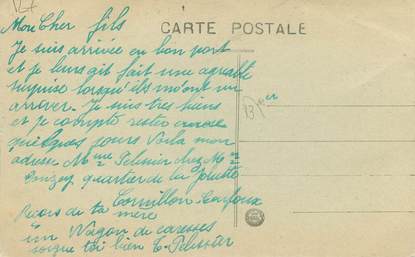 Mon Cher fils
CARTE POSTALE
Je suis arrivée en bon port
et je leurs ait fait une agreable
surprise lorsqu'ils m'ont vu
arriver. Je suis tres biens
et je compte rester encore
quelques jours Voila mon
adresse Mme Pelissier chez Mr
quartier de la
Cornillon Confoux
Reçois de ta mère
un Wagon de caresses
soigne toi bien E. Pelissier